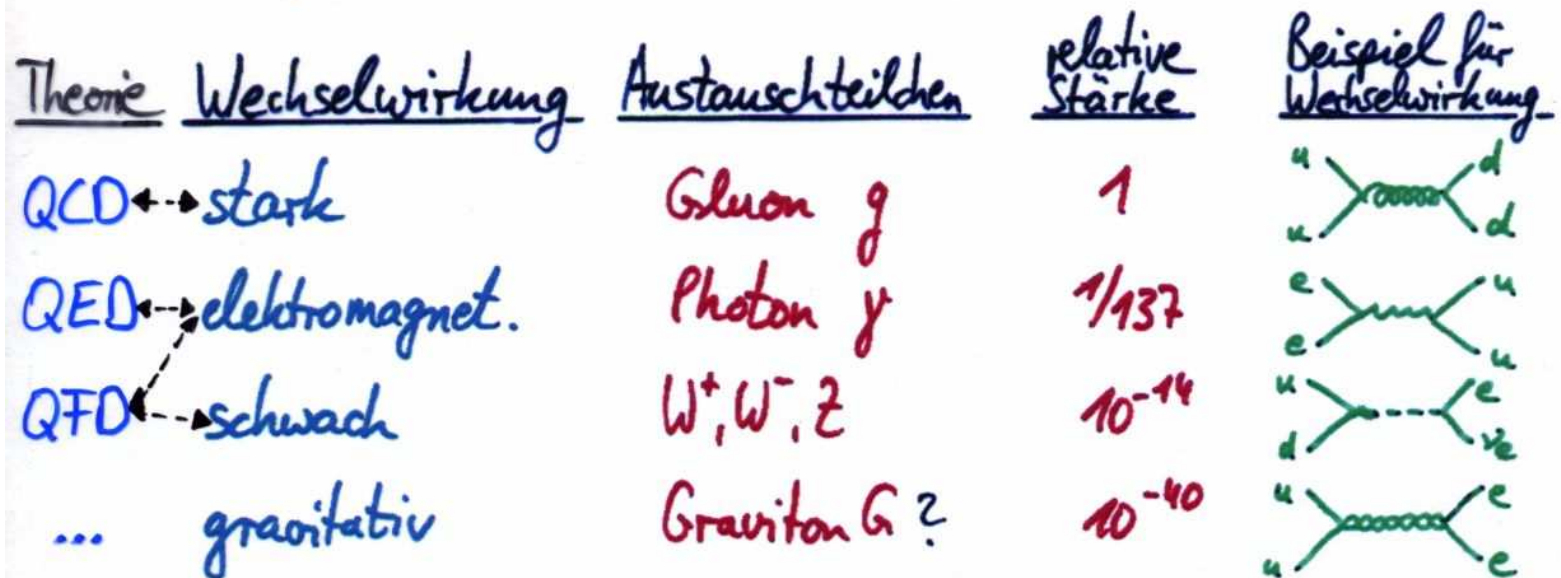 Theorie Wechselwirkung Austauschteilchen relative Stärke Beispiel für Wechselwirkung
QCD stark Gluon g 1 u u d d
QED elektromagnet. Photon γ 1/137 e e u u
QFD schwach W⁺, W⁻, Z 10⁻¹⁴ u d e νe
... gravitativ Graviton G ? 10⁻⁴⁰ u u e e